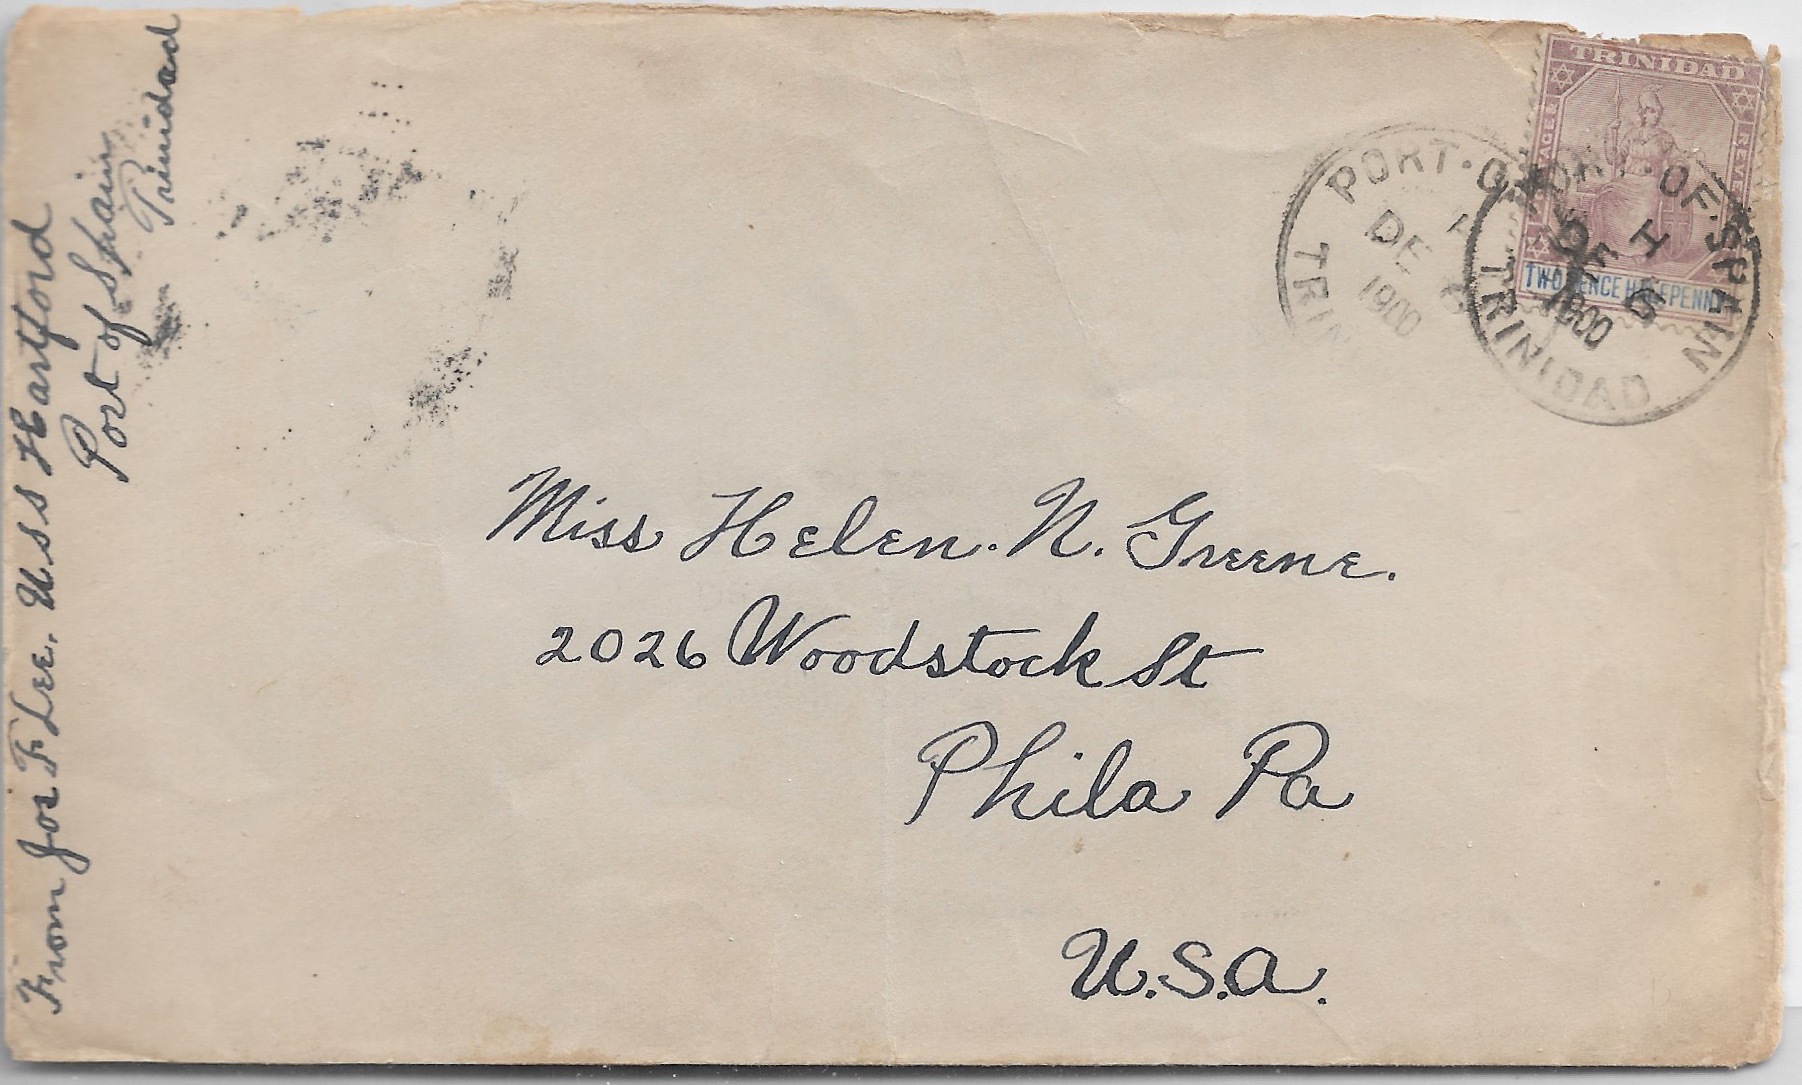 From Jos F Lee. U.S.S Hartford
Port of Spain
Trinidad
TRINIDAD
TWO PENCE HALFPENNY
PORT-OF-SPAIN
H
DE 6
1900
TRINIDAD
PORT-O
H
DE 6
1900
TRIN
Miss Helen. N. Greene.
2026 Woodstock St
Phila Pa
U.S.A.